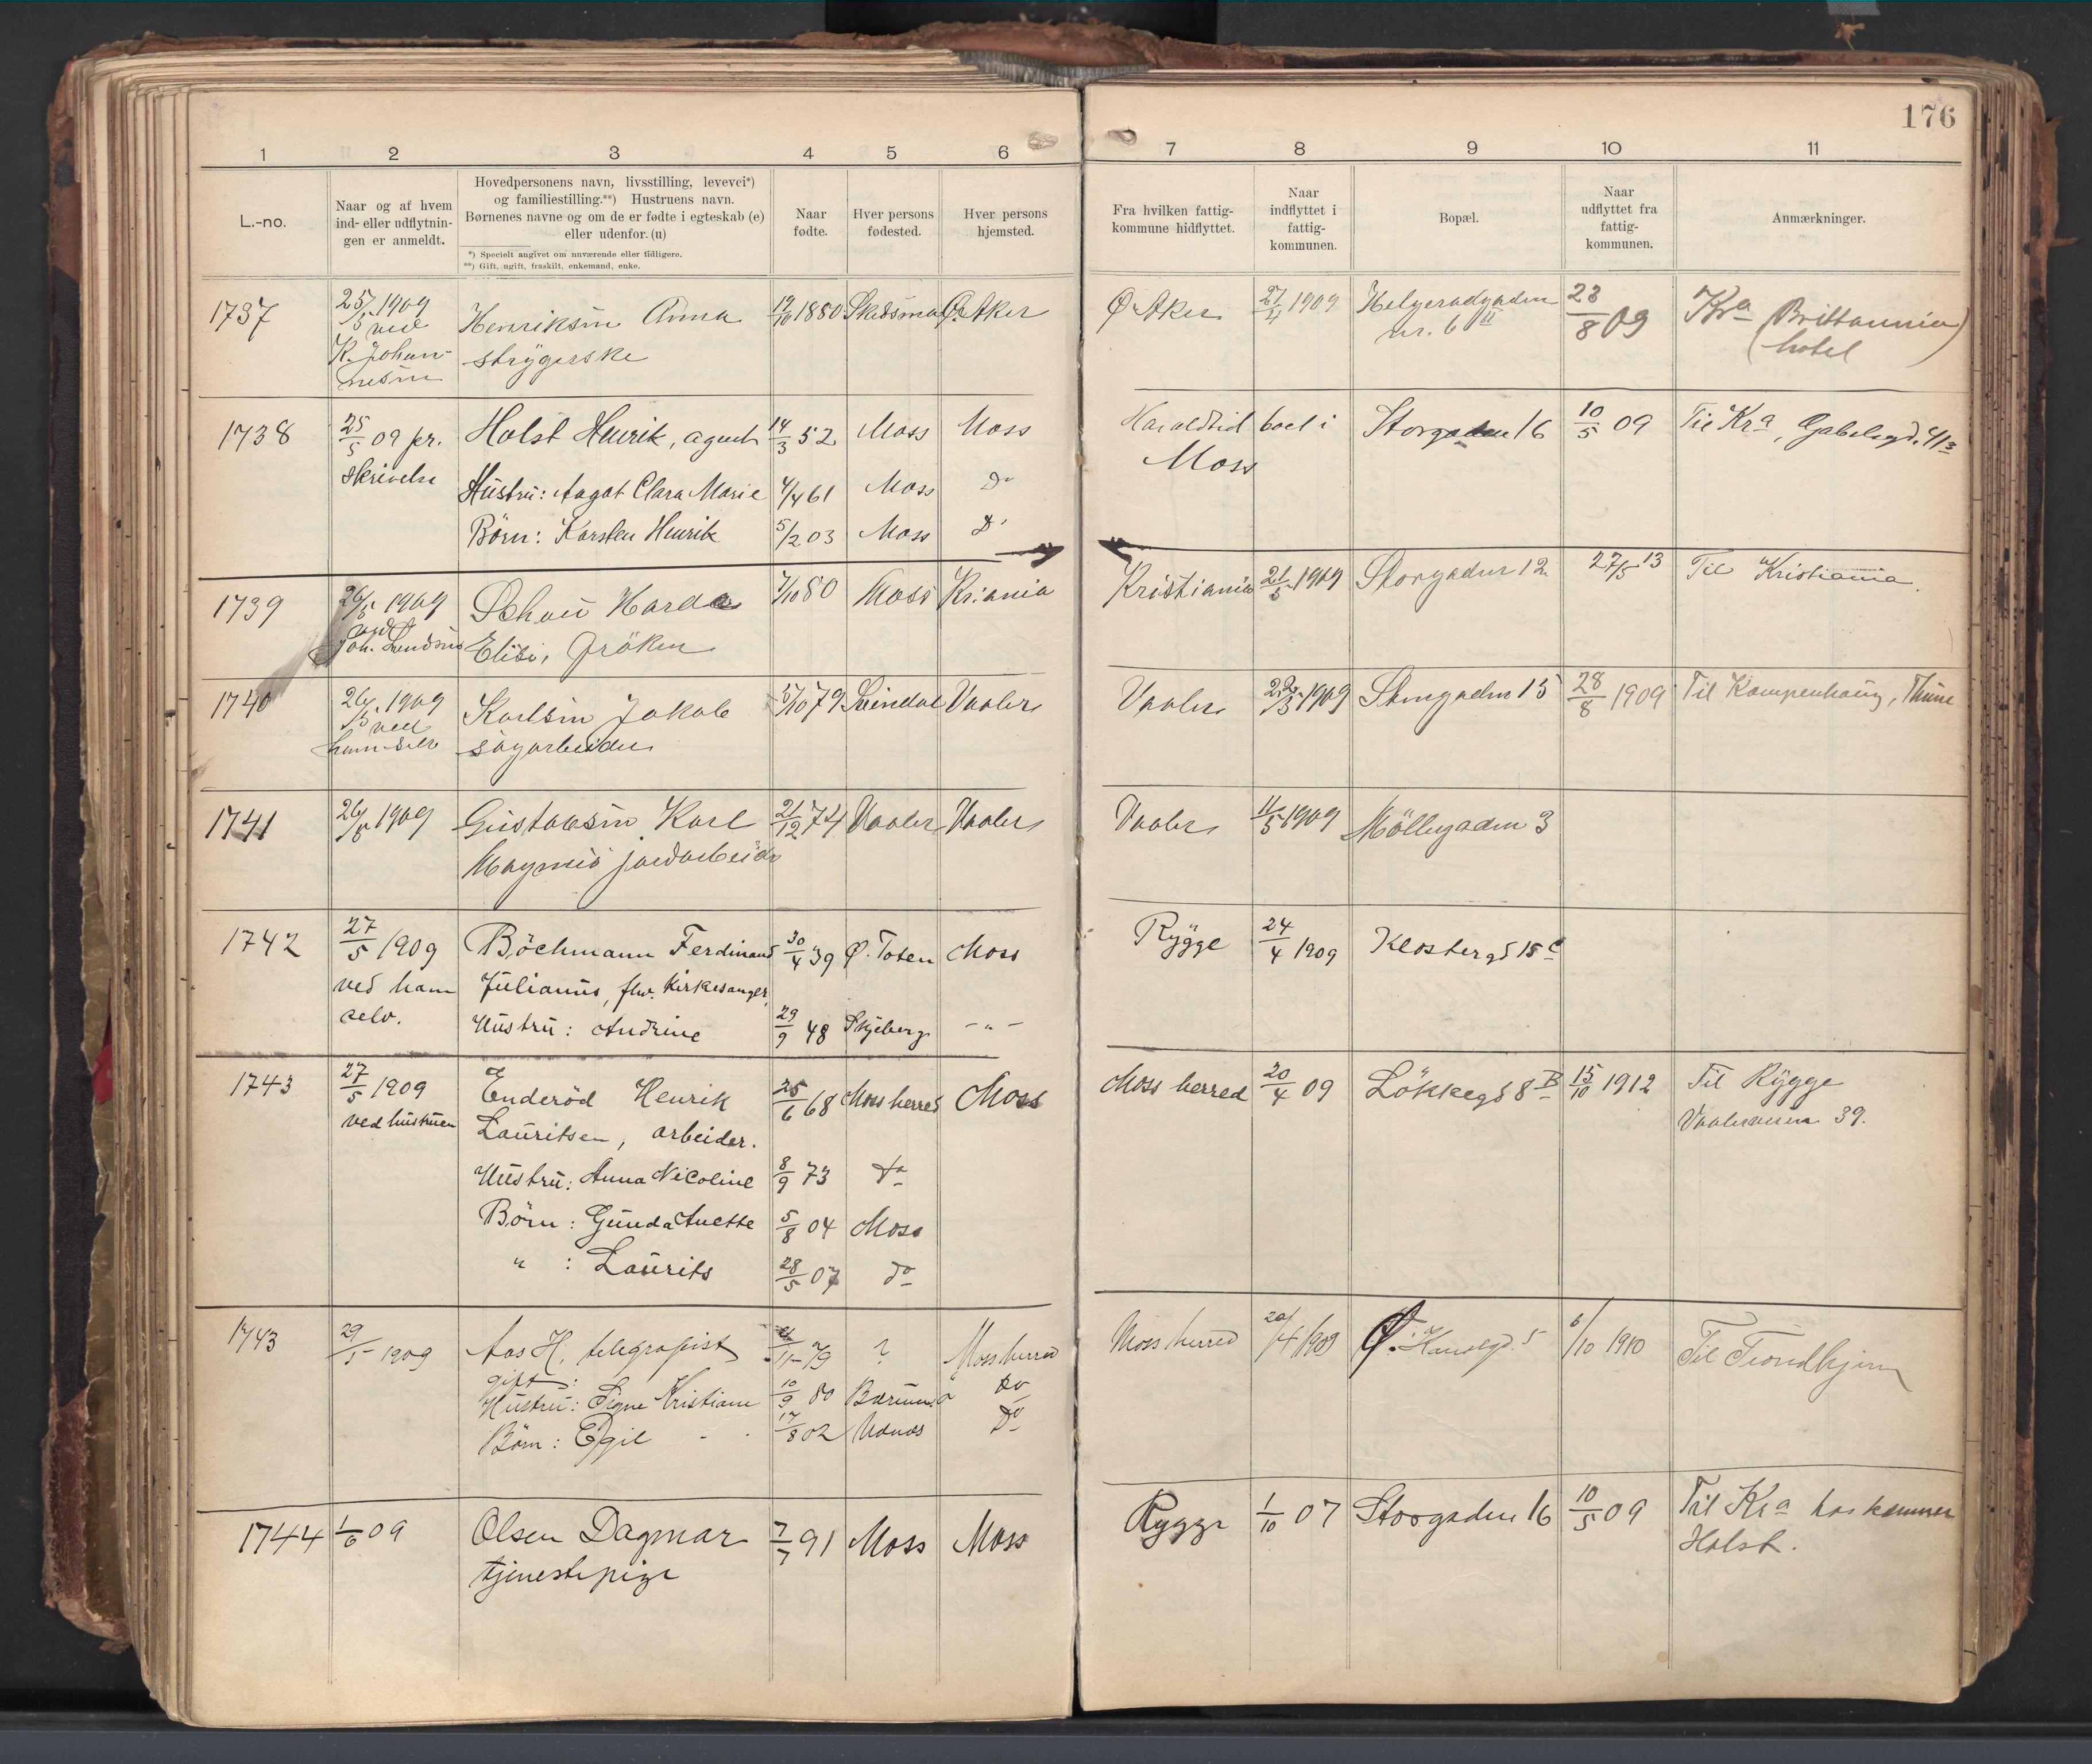 176
1 2 3 4 5 6 7 8 9 10 11
L.-no.
Naar og af hvem
ind- eller udflytnin-
gen er anmeldt.
Hovedpersonens navn, livsstilling, levevei*)
og familiestilling.**) Hustruens navn.
Børnenes navne og om de er fødte i egteskab (e)
eller udenfor. (u)
*) Specielt angivet om nuværende eller tidligere.
**) Gift, ugift, fraskilt, enkemand, enke.
Naar
fødte.
Hver persons
fødested.
Hver persons
hjemsted.
Fra hvilken fattig-
kommune hidflyttet.
Naar
indflyttet i
fattig-
kommunen.
Bopæl.
Naar
udflyttet fra
fattig-
kommunen.
Anmærkninger.
1737 25/5 1909 Henriksen Anna 19/10 1880 Skedsmo Ø. Aker Ø Aker 27/4 1909 23/8 09 Kra (Brittannia
ved nr. 6 II hotel)
K. Johan- strygerske
nesen
1738 25/5 09 pr. Holst Henrik, agent 14/3 52 Moss Moss Har altid boet i Storgaden 16 10/5 09 Til Kra, Gabelsgd. 41
skrivelse Hustru: Aagot Clara Marie 4/4 61 Moss Do Moss
Børn: Karsten Henrik 5/2 03 Moss Do
1739 26/5 1909 Schou Harda 7/10 80 Moss Kr.ania Kristiania 21/5 1909 Storgaden 12 27/5 13 Til Kristiania.
ved
Joh. Elise, frøken
1740 26/5 1909 Karlsen Jakob 5/10 79 Svindal Vaaler Vaaler 1909 Storgaden 15 28/8 1909 Til Kampenhaug, Thune
ved
ham selv sagarbeider
1741 26/5 1909 Gustavsen Karl 21/12 74 Vaaler Vaaler Vaaler 11/5 1909 Møllegaden 3
Magnus jordarbeider
1742 27/5 1909 Bøchmann Ferdinand 30/4 39 Ø. Toten Moss Rygge 24/4 1909 Klostergd 15 c
ved ham Julianus, fhv. Kirkesanger,
selv. Hustru: Andrine 29/9 48 Skjeberg - " -
1743 27/5 1909 Enderød Henrik 25/6 68 Moss herred Moss Moss herred 20/4 09 Løkkegd 8 B 15/10 1912 Til Rygge
ved hustruen Lauritsen, arbeider. Vaalerveien 39.
Hustru: Anna Nicoline 8/9 73 do
Børn: Gunda Anette 5/8 04 Moss
" : Laurits 28/5 07 do
1743 29/5 1909 Aas H, telegrafist 79 ? Moss herred Moss herred 20/4 1909 Ø. Kanalgd. 5 6/10 1910 Til Trondhjem
gift:
Hustru: Signe Kristiane 10/9 80 Bærum Do
Børn: Egil - - 17/8 02 Do
1744 1/6 09 Olsen Dagmar 7/7 91 Moss Moss Rygge 1/10 07 Storgaden 16 10/5 09 Til Kra hos
tjenestepige Holst.